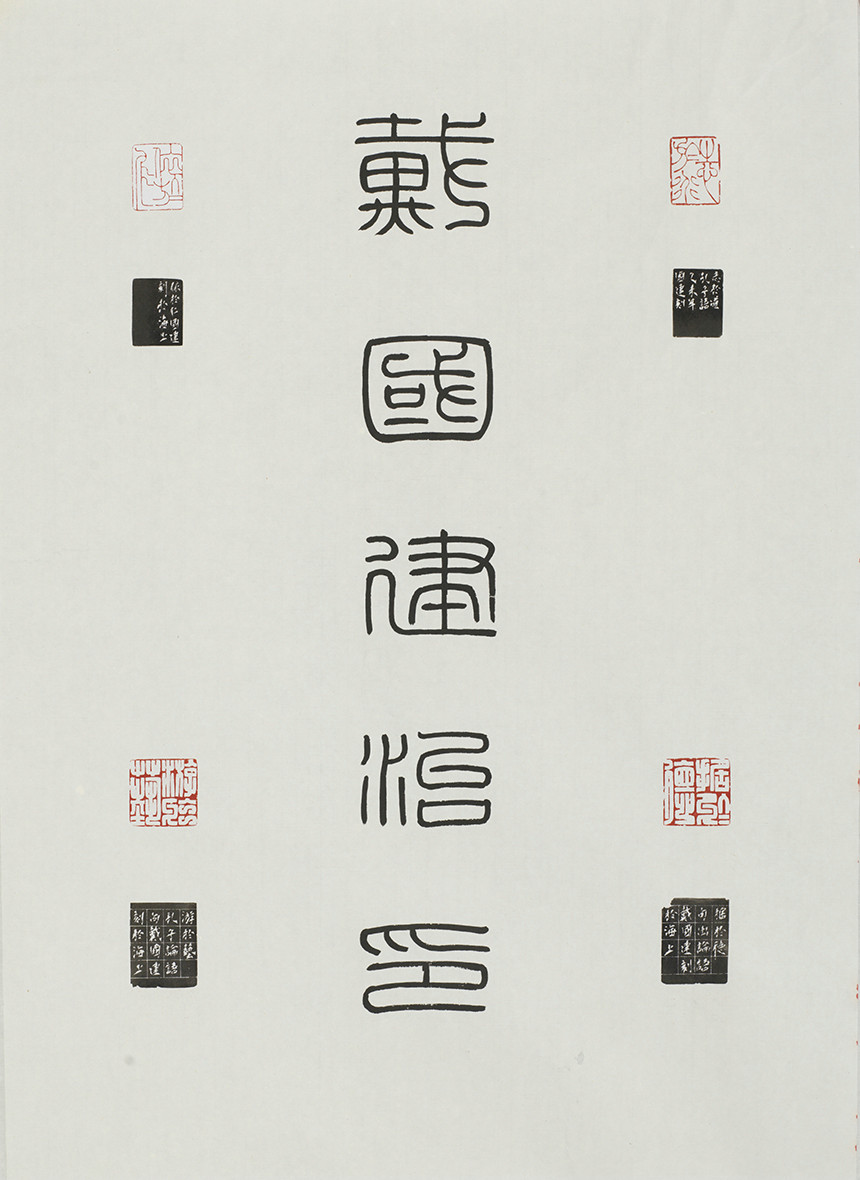 志於道
志於道
孔子語
乙未年
國建刻
據於
德
據於德
句出論語
戴國建刻
於海上
戴國建治印
依於仁
依於仁國建
刻於海上
游於
藝
游於藝
孔子論語
句戴國建
刻於海上